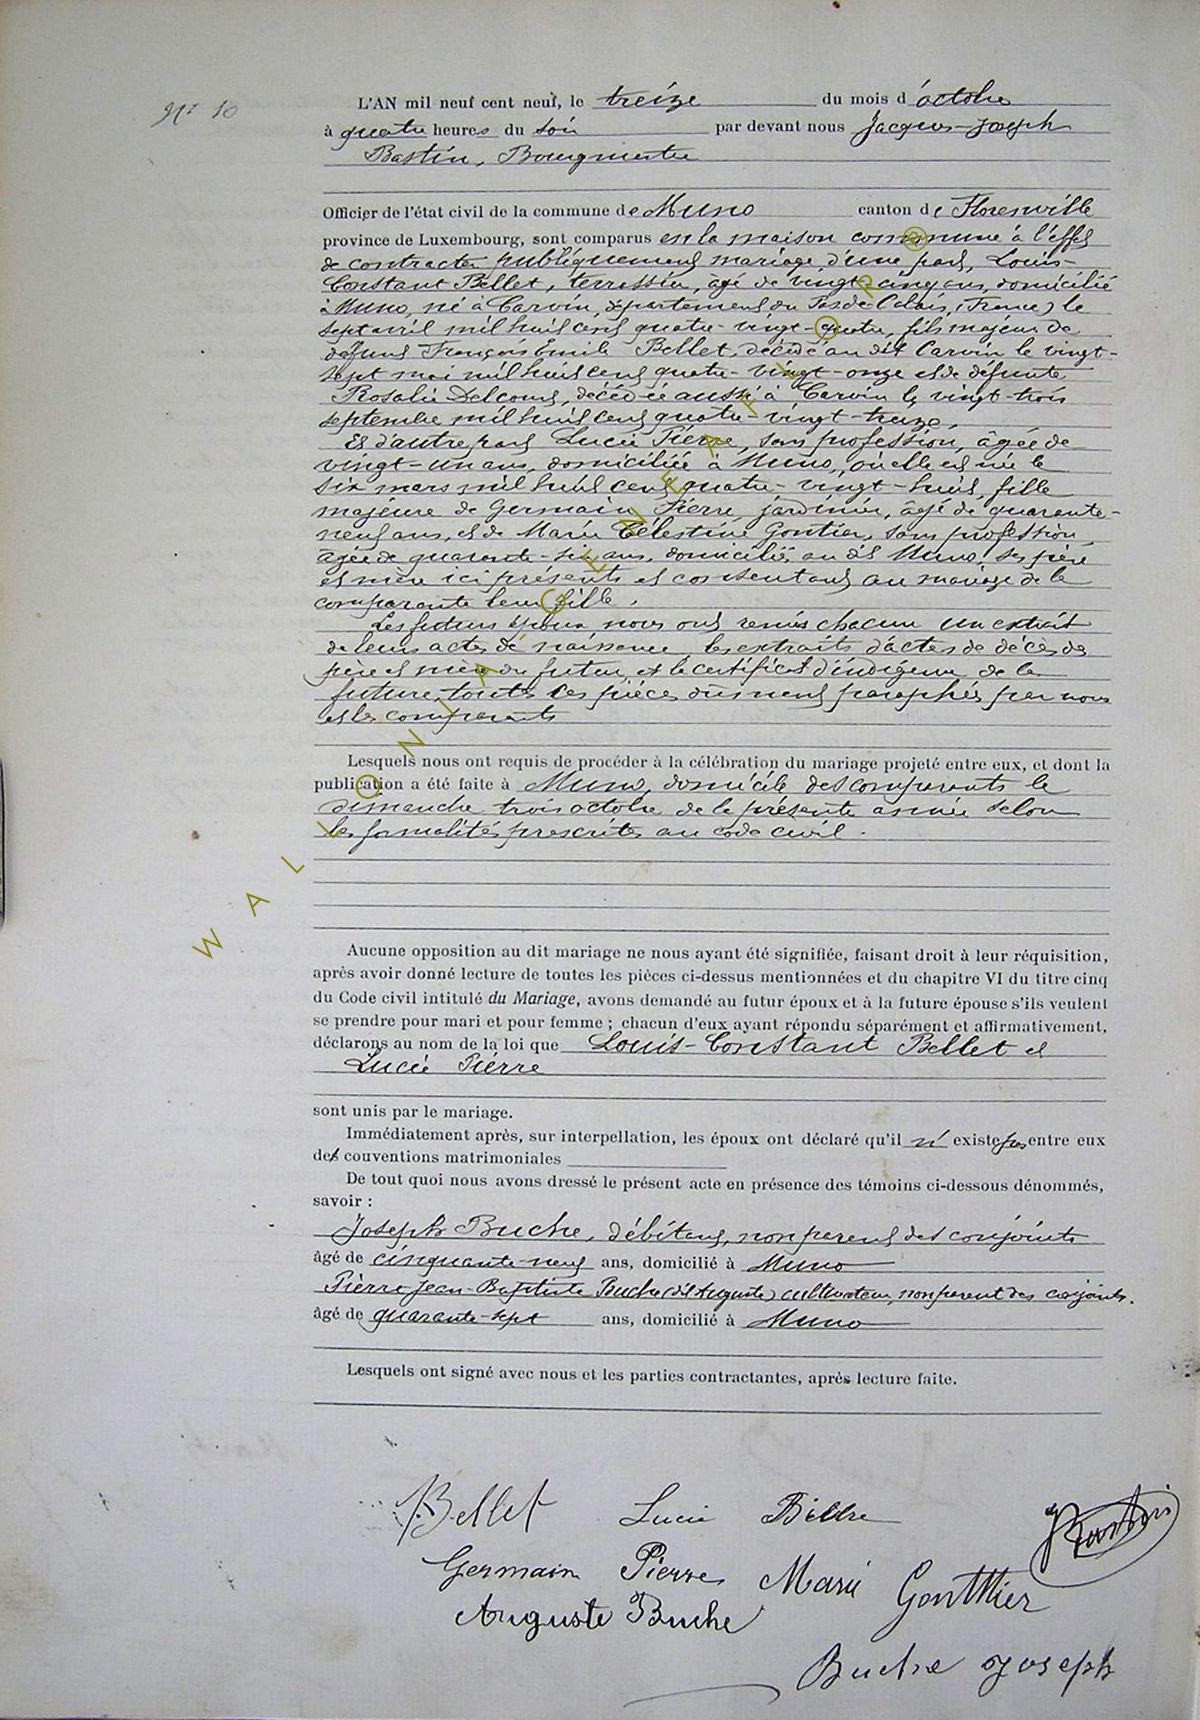 N° 10
L'AN mil neuf cent neuf, le treize du mois d'octobre
à quatre heures du soir par devant nous Jacques-Joseph
Bastin, Bourgmestre
Officier de l'état civil de la commune de Muno canton de Florenville
province de Luxembourg, sont comparus en la maison commune à l'effet
de contracter publiquement mariage, d'une part, Louis-
Constant Bellet, terrassier, âgé de vingt-cinq ans, domicilié
à Muno, né à Carvin, département du Pas-de-Calais, (France) le
sept avril mil huit cent quatre-vingt-quatre, fils majeur de
défunt François Emile Bellet, décédé au dit Carvin le vingt-
sept mai mil huit cent quatre-vingt-onze et de défunte
Rosalie Delcourt, décédée aussi à Carvin le vingt-trois
septembre mil huit cent quatre-vingt-treize,
Et d'autre part Lucie Pierre, sans profession, âgée de
vingt-un ans, domiciliée à Muno, où elle est née le
six mars mil huit cent quatre-vingt-huit, fille
majeure de Germain Pierre, jardinier, âgé de quarante-
neuf ans, et de Marie Célestine Gontier, sans profession,
âgée de quarante-six ans, domiciliés au dit Muno, ses père
et mère ici présents et consentant au mariage de la
comparante leur fille.
Les futurs époux nous ont remis chacun un extrait
de leurs actes de naissance, les extraits d'actes de décès des
père et mère du futur, et le certificat d'indigence de la
future, toutes ces pièces dûment paraphées par nous
et les comparants
Lesquels nous ont requis de procéder à la célébration du mariage projeté entre eux, et dont la
publication a été faite à Muno, domicile des comparants le
dimanche trois octobre de la présente année selon
les formalités prescrites au code civil.
Aucune opposition au dit mariage ne nous ayant été signifiée, faisant droit à leur réquisition,
après avoir donné lecture de toutes les pièces ci-dessus mentionnées et du chapitre VI du titre cinq
du Code civil intitulé du Mariage, avons demandé au futur époux et à la future épouse s'ils veulent
se prendre pour mari et pour femme ; chacun d'eux ayant répondu séparément et affirmativement,
déclarons au nom de la loi que Louis-Constant Bellet et
Lucie Pierre
sont unis par le mariage.
Immédiatement après, sur interpellation, les époux ont déclaré qu'il n' existe pas entre eux
de conventions matrimoniales
De tout quoi nous avons dressé le présent acte en présence des témoins ci-dessous dénommés,
savoir :
Joseph Buche, débitant, non parent des conjoints
âgé de cinquante-neuf ans, domicilié à Muno
Pierre Jean-Baptiste Buche (dit Auguste) cultivateur, non parent des conjoints.
âgé de quarante-sept ans, domicilié à Muno
Lesquels ont signé avec nous et les parties contractantes, après lecture faite.
Bellet Lucie Pierre JBastin
Germain Pierre Marie Gontthier
Auguste Buche
Buche Joseph
WALLONIA GENEAFLOR ®